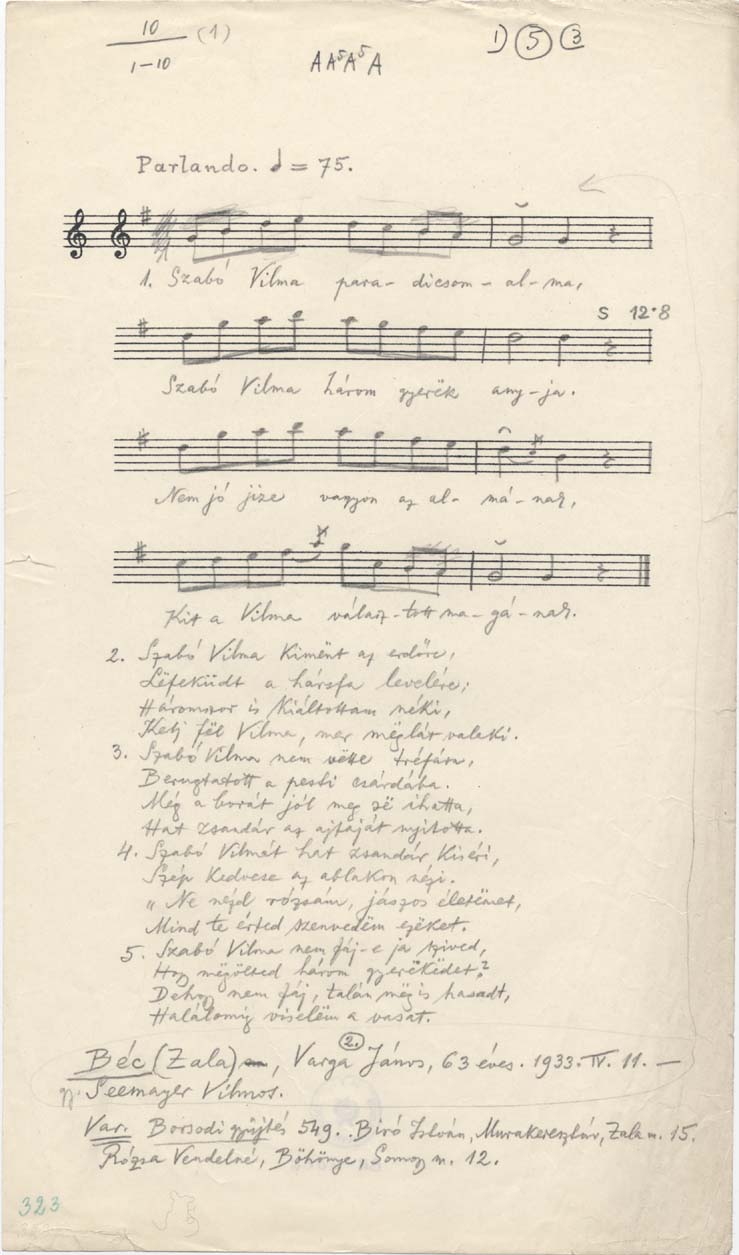 10 (1)
1-10
A A⁵ A⁵ A
1) 5 3
Parlando. ♩ = 75.
1. Szabó Vilma para- dicsom- al- ma,
S 12·8
Szabó Vilma három gyerëk any-ja.
Nem jó jize vagyon az al- má- nak,
Kit a Vilma válasz-tott ma-gá-nak.
2. Szabó Vilma kimënt az erdőre,
Lëfeküdt a hársfa levelére;
Háromszor is kiáltottam néki,
Kelj fël Vilma, mer mëglát valaki.
3. Szabó Vilma nem vëtte tréfára,
Berugtatott a pesti csárdába.
Még a borát jól meg së ihatta,
Hat zsandár az ajtaját nyitotta.
4. Szabó Vilmát hat zsandár kiséri,
Szép kedvese az ablakon nézi.
"Ne nézd rózsám, jászos életëmet,
Mind te érted szenvedëm ezëket.
5. Szabó Vilma nem fáj-e ja szived,
Hogy mëgölted három gyerëkëdet?
Dehogy nem fáj, talán mëg is hasadt,
Halálomig viselëm a vasat.
2.
Béc (Zala), Varga János, 63 éves. 1933. IV. 11. —
gy. Seemayer Vilmos.
Var. Borsodi gyűjtés 549. Biró István, Murakeresztúr, Zala m. 15.
Rózsa Vendelné, Böhönye, Somogy m. 12.
323